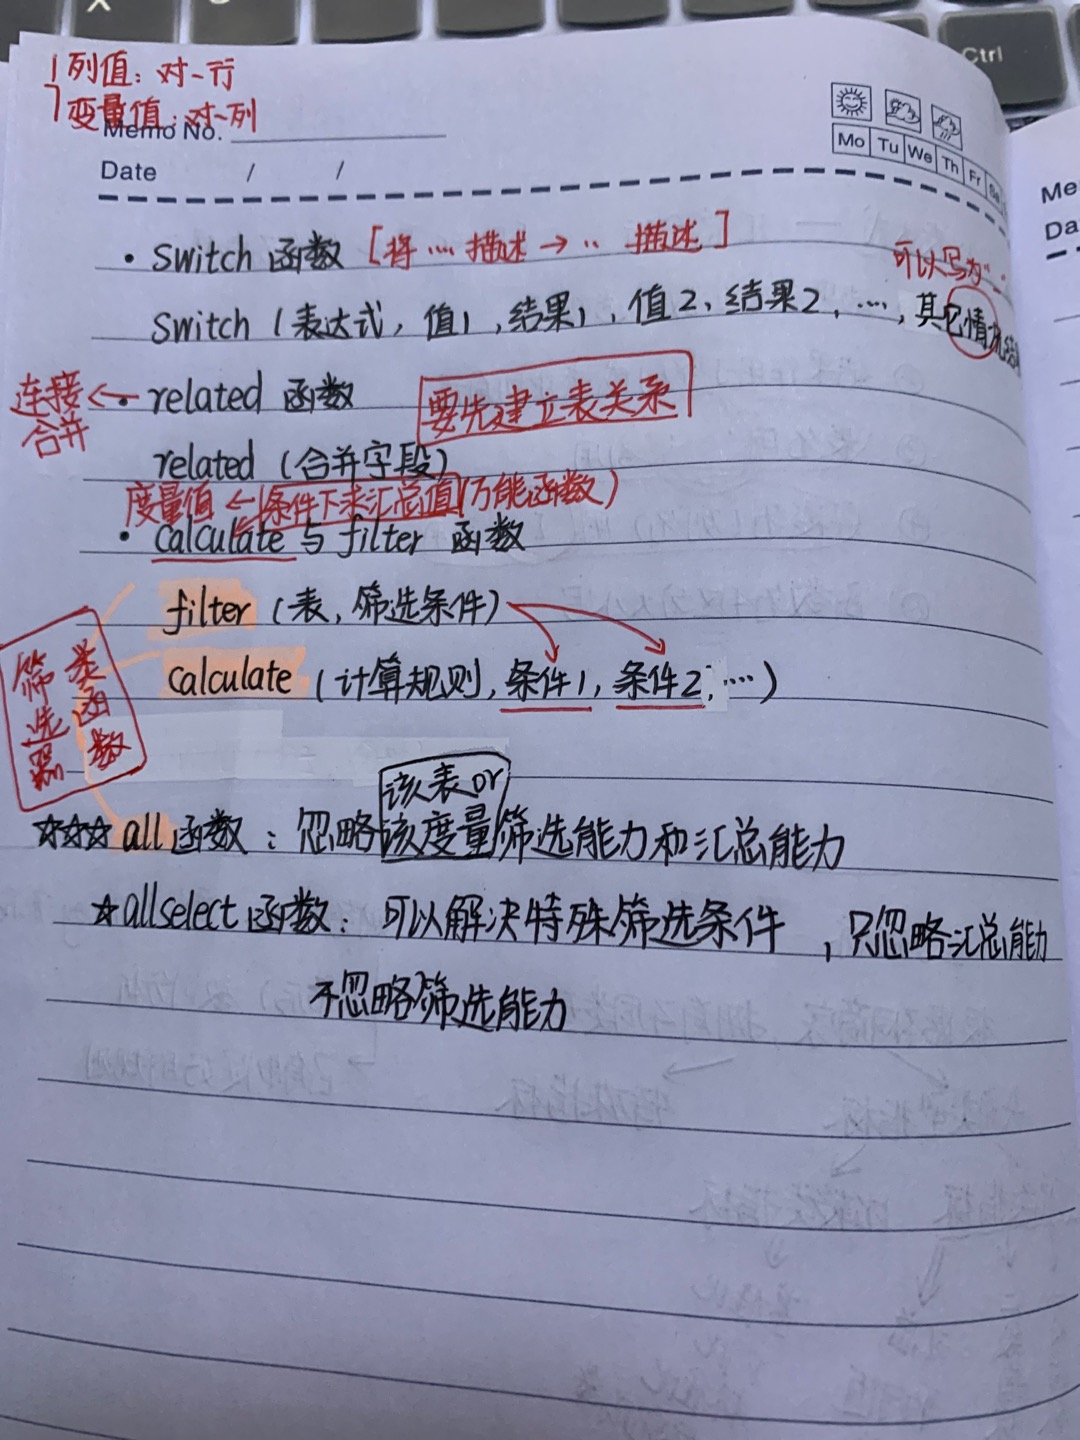 Ctrl
列值：对一行
变量值：对一列
Memo No.
Date / /
Mo Tu We Th Fr Sa
Me
Da
• Switch 函数 [将 … 描述 → ‥ 描述]
可以写为"
Switch（表达式，值1，结果1，值2，结果2，…，其它情况结果
连接
合并
← • related 函数 要先建立表关系
related（合并字段）
度量值 ← 条件下来汇总值（万能函数）
• Calculate 与 filter 函数
filter（表，筛选条件）
calculate（计算规则，条件1，条件2，…）
筛选器
类函数
该表or
☆☆☆ all函数：忽略该度量筛选能力和汇总能力
☆allselect函数：可以解决特殊筛选条件，只忽略汇总能力
不忽略筛选能力